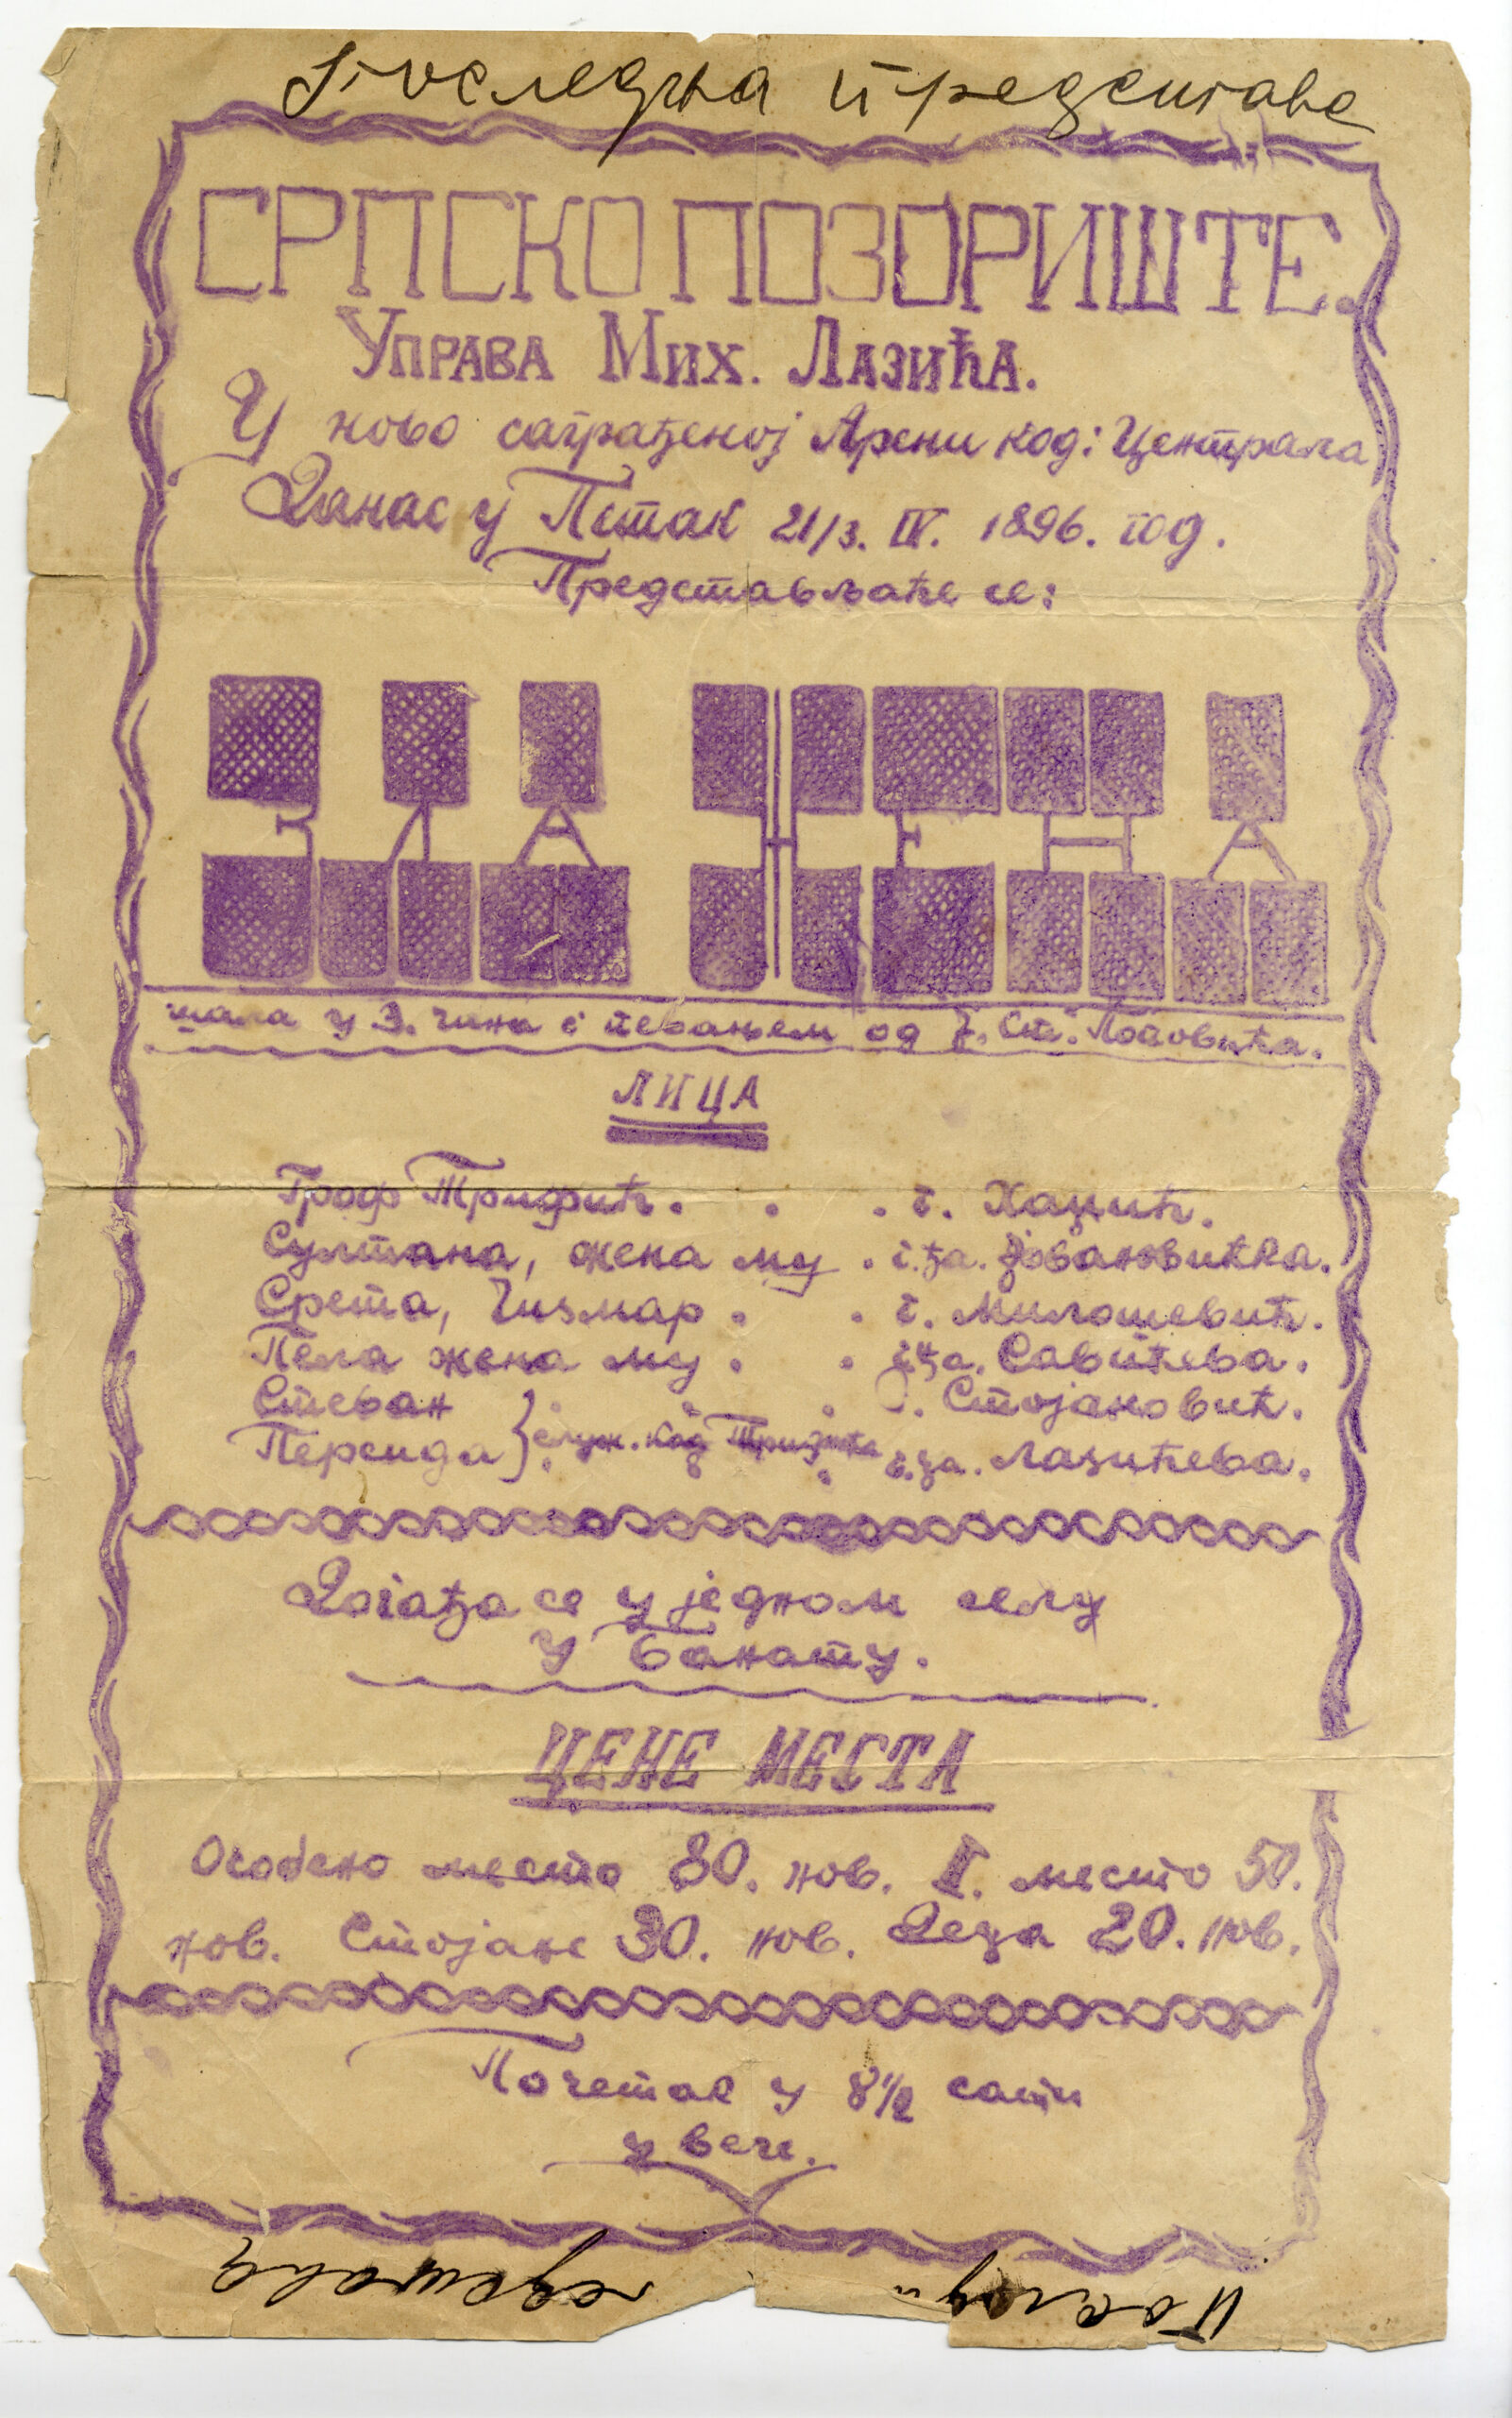 Последња представа
СРПСКО ПОЗОРИШТЕ.
УПРАВА МИХ. ЛАЗИЋА.
У ново саграђеној Арени код: Централа
Данас у Петак 21/3. IV. 1896. год.
Представљаће се:
ЗЛА ЖЕНА
шала у 3. чина с певањем од J. Ст. Поповића.
ЛИЦА
Гроф Трифић . . . г. Хаџић.
Султана, жена му . г.ђа. Јовановићка.
Срета, Чизмар . . г. Милошевић.
Пела жена му . . г.ђа. Савићева.
Стеван . . . г. Стојановић.
Персида } служ. код Трифића г.ђа. Лазићева.
Догађа се у једном селу
у Банату.
ЦЕНЕ МЕСТА
Особено место 80. нов. II. место 50.
нов. Стојане 30. нов. Деца 20. нов.
Почетак у 8½ сати
у вече.